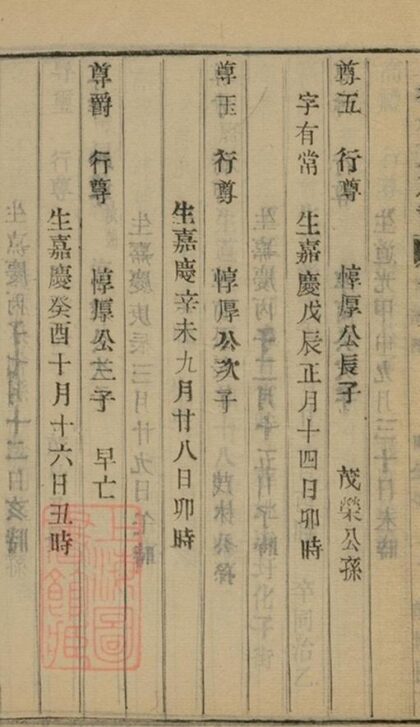 尊五 行尊 惇厚公長子 茂榮公孫
字有常 生嘉慶戊辰正月十四日卯時
尊玉 行尊 惇厚公次子
生嘉慶辛未九月廿八日卯時
尊爵 行尊 惇厚公三子 早亡
生嘉慶癸酉十月十六日丑時